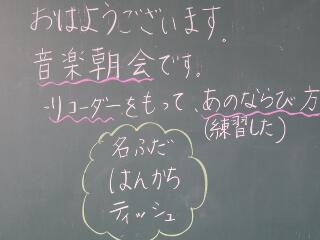 おはようございます。
音楽朝会です。
・リコーダーをもって、あのならび方
(練習した)
名ふだ
はんかち
ティッシュ